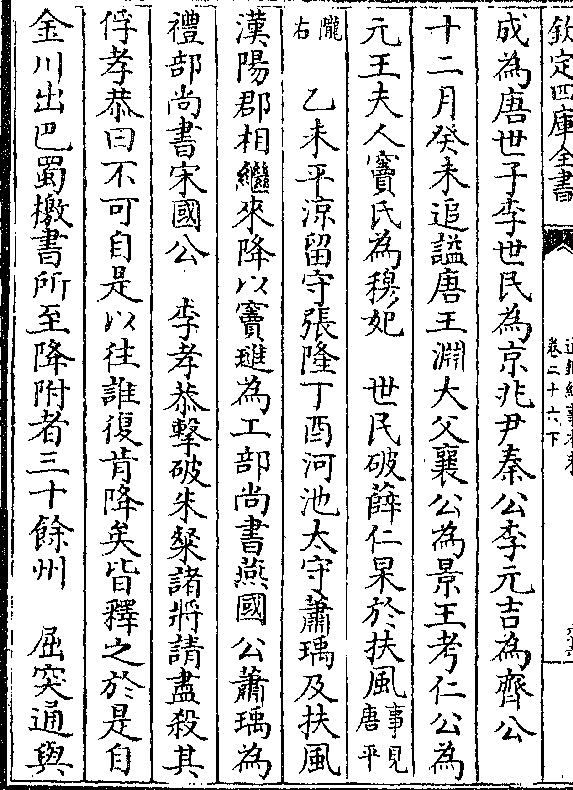 欽定四庫全書
卷二十六下
成為唐世子李世民為京兆尹秦公李元吉為齊公
十二月癸未追謚唐王淵大父襄公為景王考仁公為
元王夫人竇氏為穆妃　世民破薛仁杲於扶風事見唐平
隴右　乙未平涼留守張隆丁酉河池太守蕭瑀及扶風
漢陽郡相繼來降以竇璡為工部尚書燕國公蕭瑀為
禮部尚書宋國公　李孝恭擊破朱粲諸將請盡殺其
俘孝恭曰不可自是以往誰復肯降矣皆釋之於是自
金川出巴蜀檄書所至降附者三十餘州　屈突通與